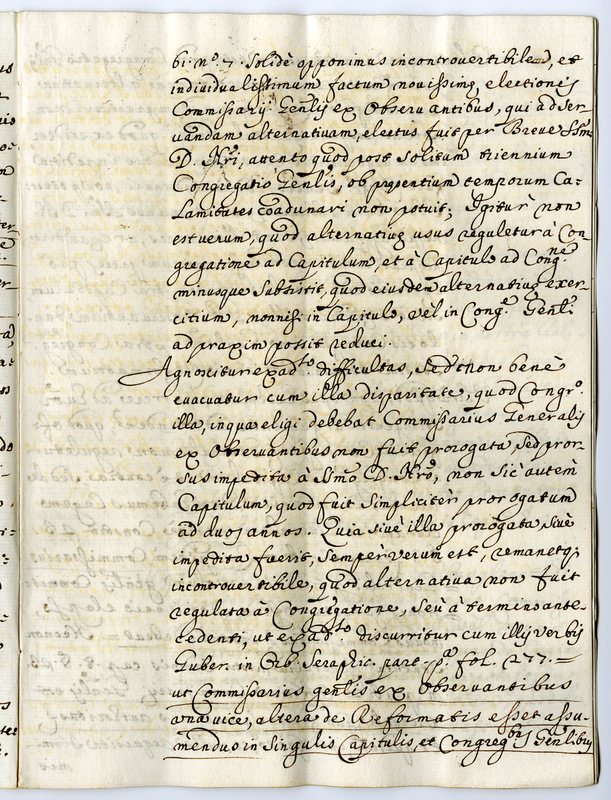 bi. nº. 7. Solidè opponimus incontrovertibilem, et
individualissimum factum novissimę electionis
Commissarij Genlis ex Observantibus, qui ad ser-
vandam alternativam, electus fuit per Breve SSm
D. Nri, attento quod post solitum triennium
Congregatio Genlis, ob pręsentium temporum Ca-
lamitates coadunari non potuit; Igitur non
est verum, quod alternativę usus reguletur à Con
gregatione ad Capitulum, et à Capitulo ad Congne
minusque subsistit, quod eiusdem alternativę exer-
citium, nonnisi in Capitulo, vel in Cong.e Genli
ad praxim possit reduci.
Agnoscitur ex adto difficultas, sed non benè
evacuatur cum illa disparitate, quod Congro.
illa, in qua eligi debebat Commissarius Generalis
ex Observantibus non fuit prorogata, sed pror-
sus impedita à SSmo D. Nro, non sic autem
Capitulum, quod fuit simpliciter prorogatum
ad duos annos. Quia sivè illa prorogata, sivè
impedita fuerit, semper verum est, remanetq;
incontrovertibile, quod alternativa non fuit
regulata à Congregatione, seù à termins ante-
cedenti, ut ex adto. discurritur cum illis verbis
Guber. in Orb. Seraphic. part. pa. fol. 277. =
ut Commissarius genlis ex Observantibus
una vice, altera de Reformatis esset assu-
mendus in singulis Capitulis, et Congregbus Genlibus